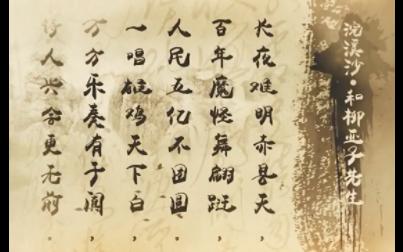 浣溪沙·和柳亚子先生
长夜难明赤县天，
百年魔怪舞翩跹，
人民五亿不团圆。
一唱雄鸡天下白，
万方乐奏有于阗，
诗人兴会更无前。